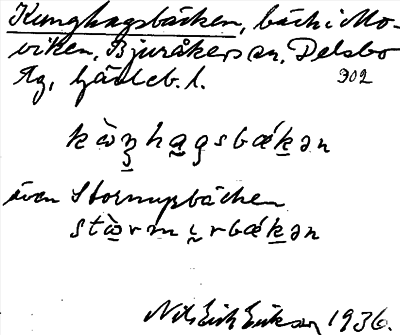 Kunghagsbäcken, bäck i Mo-
viken, Bjuråkers sn, Delsbo
tg, Gävleb. l. 302
kὼŋhagsbǽkən
även Stormyrbäcken
stὼrmyrbǽkən
Nils Erik Eriksson 1936.